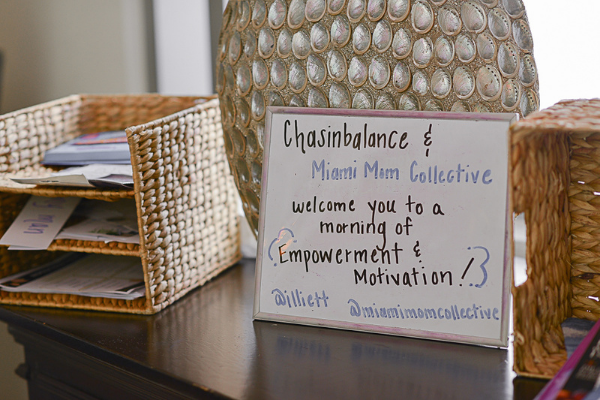 Chasinbalance &
Miami Mom Collective
welcome you to a
morning of
Empowerment &
Motivation!
@illiett @miamimomcollective